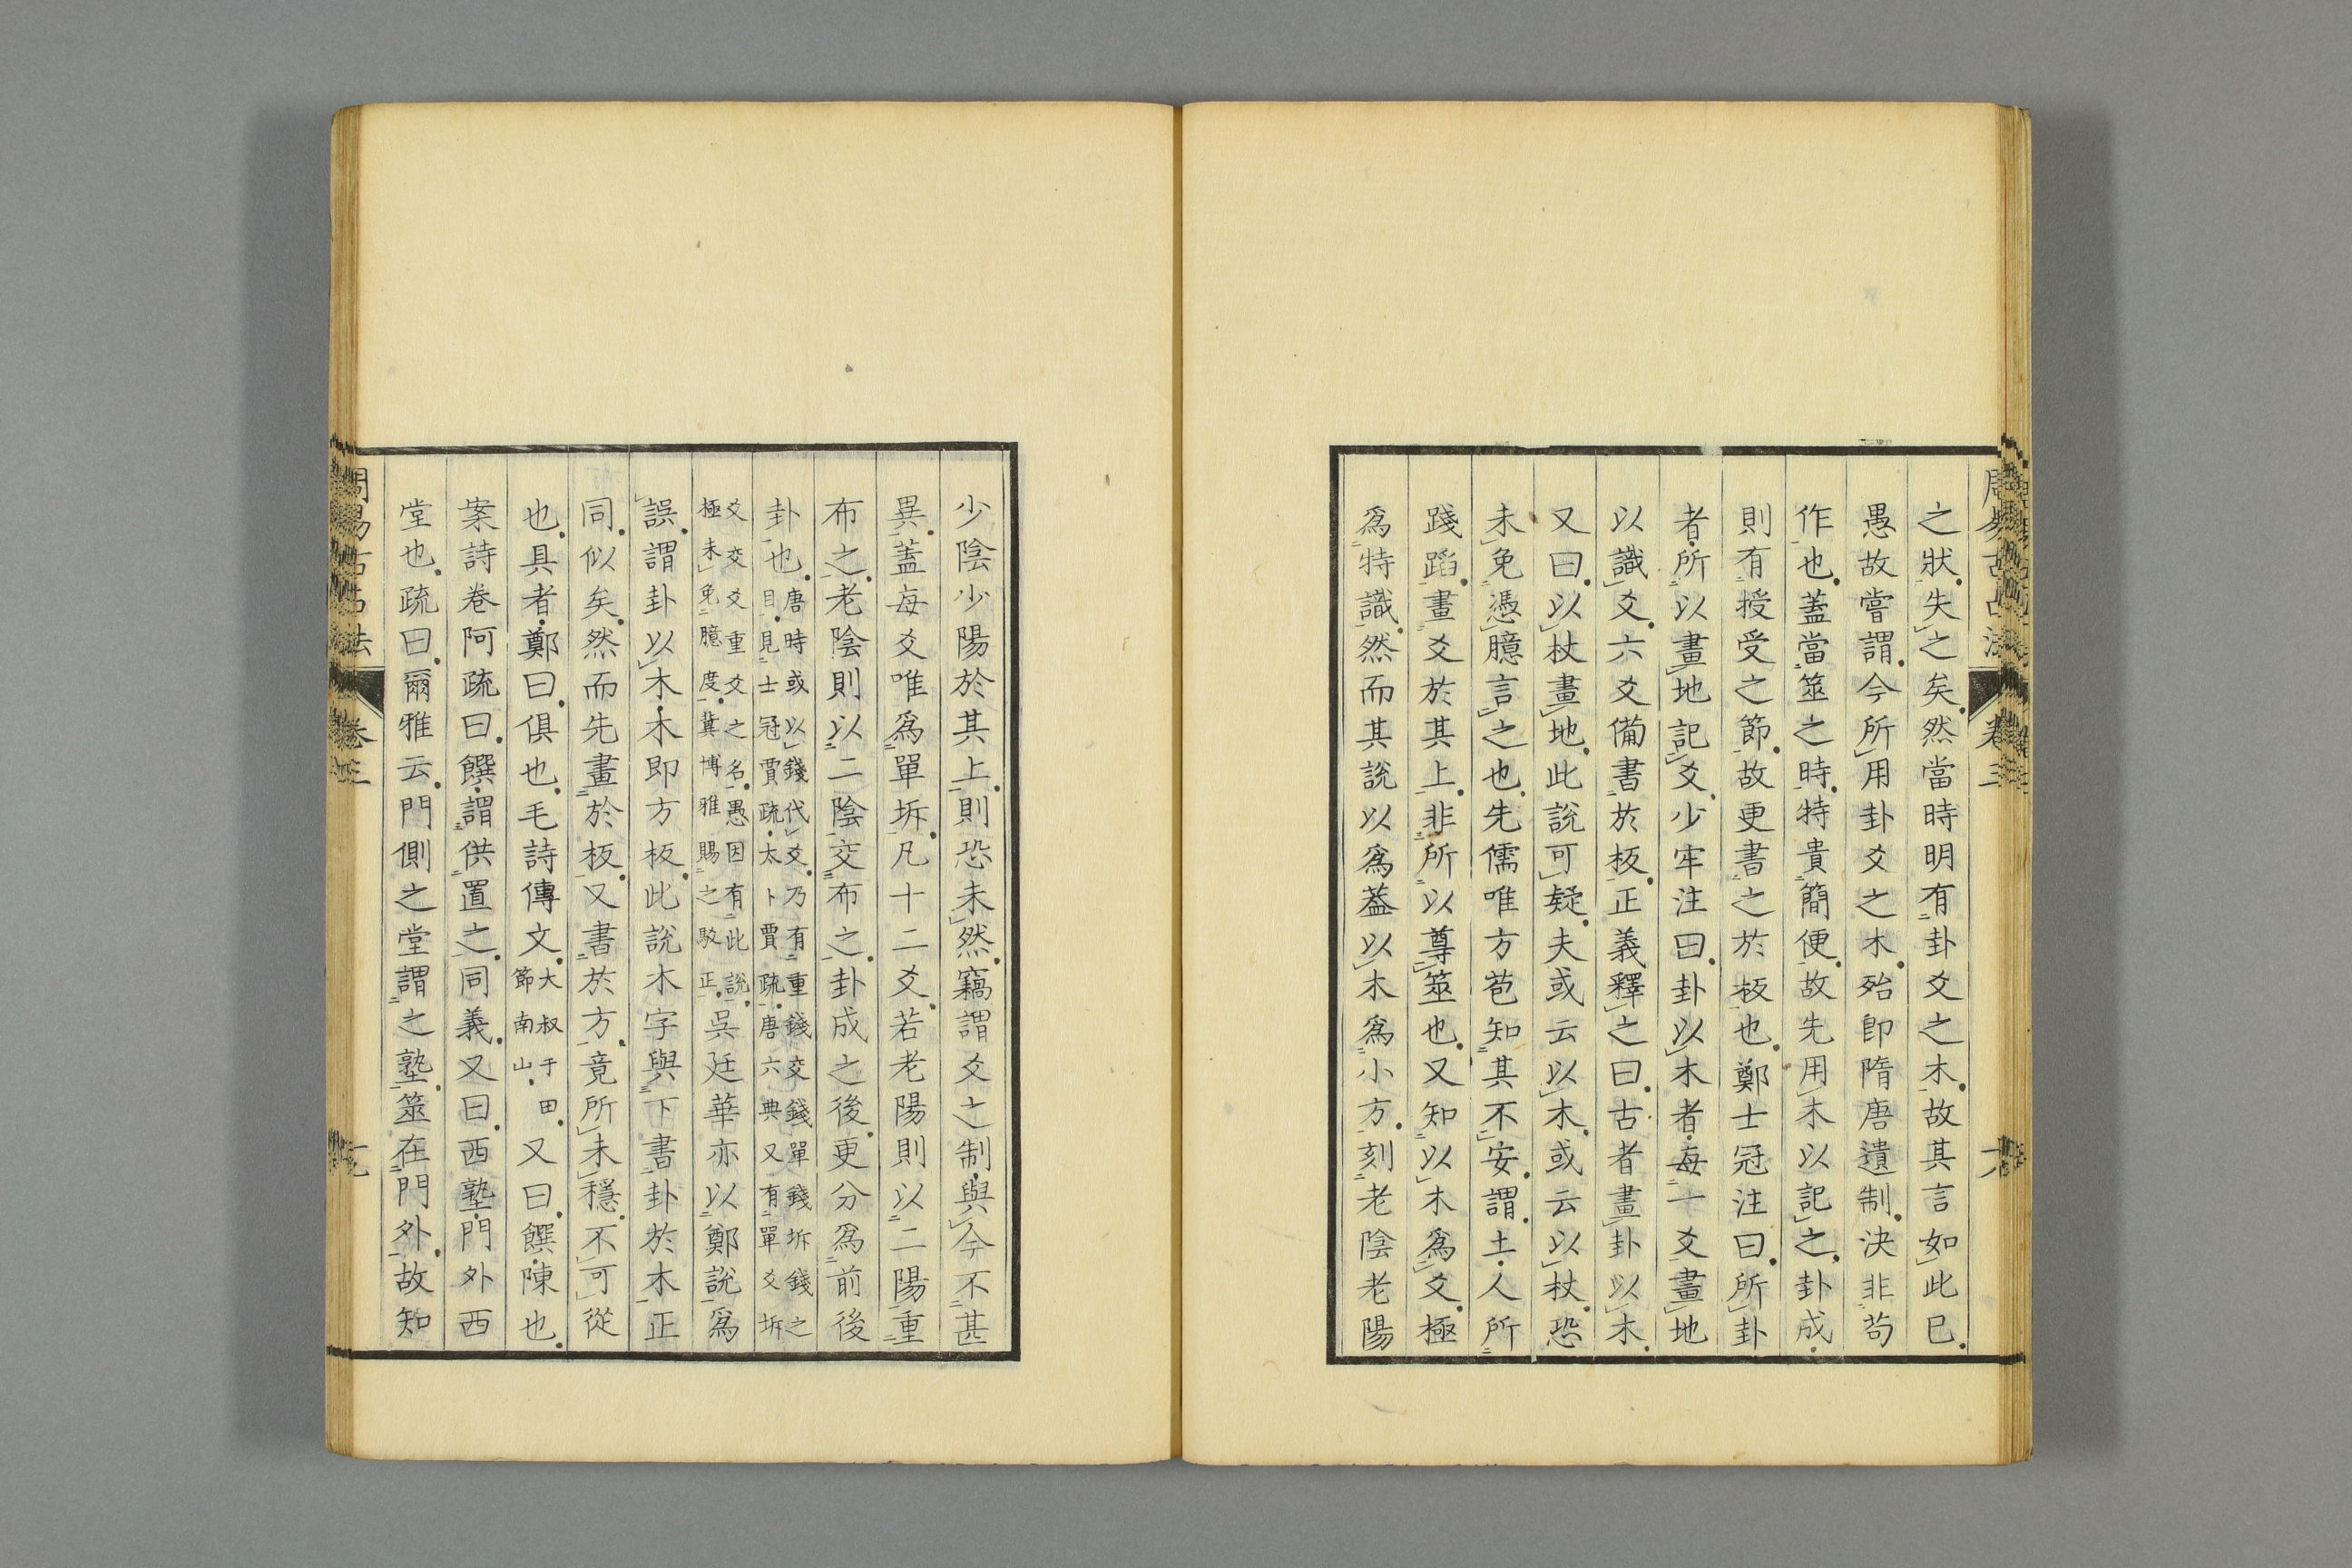 之狀失之矣然當時明有卦爻之木故其言如此已
愚故嘗謂今所用卦爻之木殆即隋唐遺制決非苟
作也蓋當筮之時特貴簡便故先用木以記之卦成
則有授受之節故更書之於板也鄭士冠注曰所卦
者所以畫地記爻少牢注曰卦以木者每一爻畫地
以識爻六爻備書於板正義釋之曰古者畫卦以木
又曰以杖畫地此說可疑夫或云以木或云以杖恐
未免憑臆言之也先儒唯方苞知其不安謂土人所
踐蹈畫爻於其上非所以尊筮也又知以木為爻極
為特識然而其說以為蓋以木為小方刻老陰老陽
少陰少陽於其上則恐未然竊謂爻之制與今不甚
異蓋每爻唯為單坼凡十二爻若老陽則以二陽重
布之老陰則以二陰交布之卦成之後更分為前後
卦也唐時或以錢代爻乃有重錢交錢單錢坼錢之
目見士冠賈疏太卜賈疏唐六典又有單爻坼
爻交爻重爻之名愚因有此說
極未免臆度冀博雅賜之駁正吳廷華亦以鄭說為
誤謂卦以木木即方板此說木字與下書卦於木正
同似矣然而先畫於板又書於方竟所未穩不可從
也具者鄭曰俱也毛詩傳文大叔于田
節南山又曰饌陳也
案詩卷阿疏曰饌謂供置之同義又曰西塾門外西
堂也疏曰爾雅云門側之堂謂之塾筮在門外故知
周易古占法
卷三